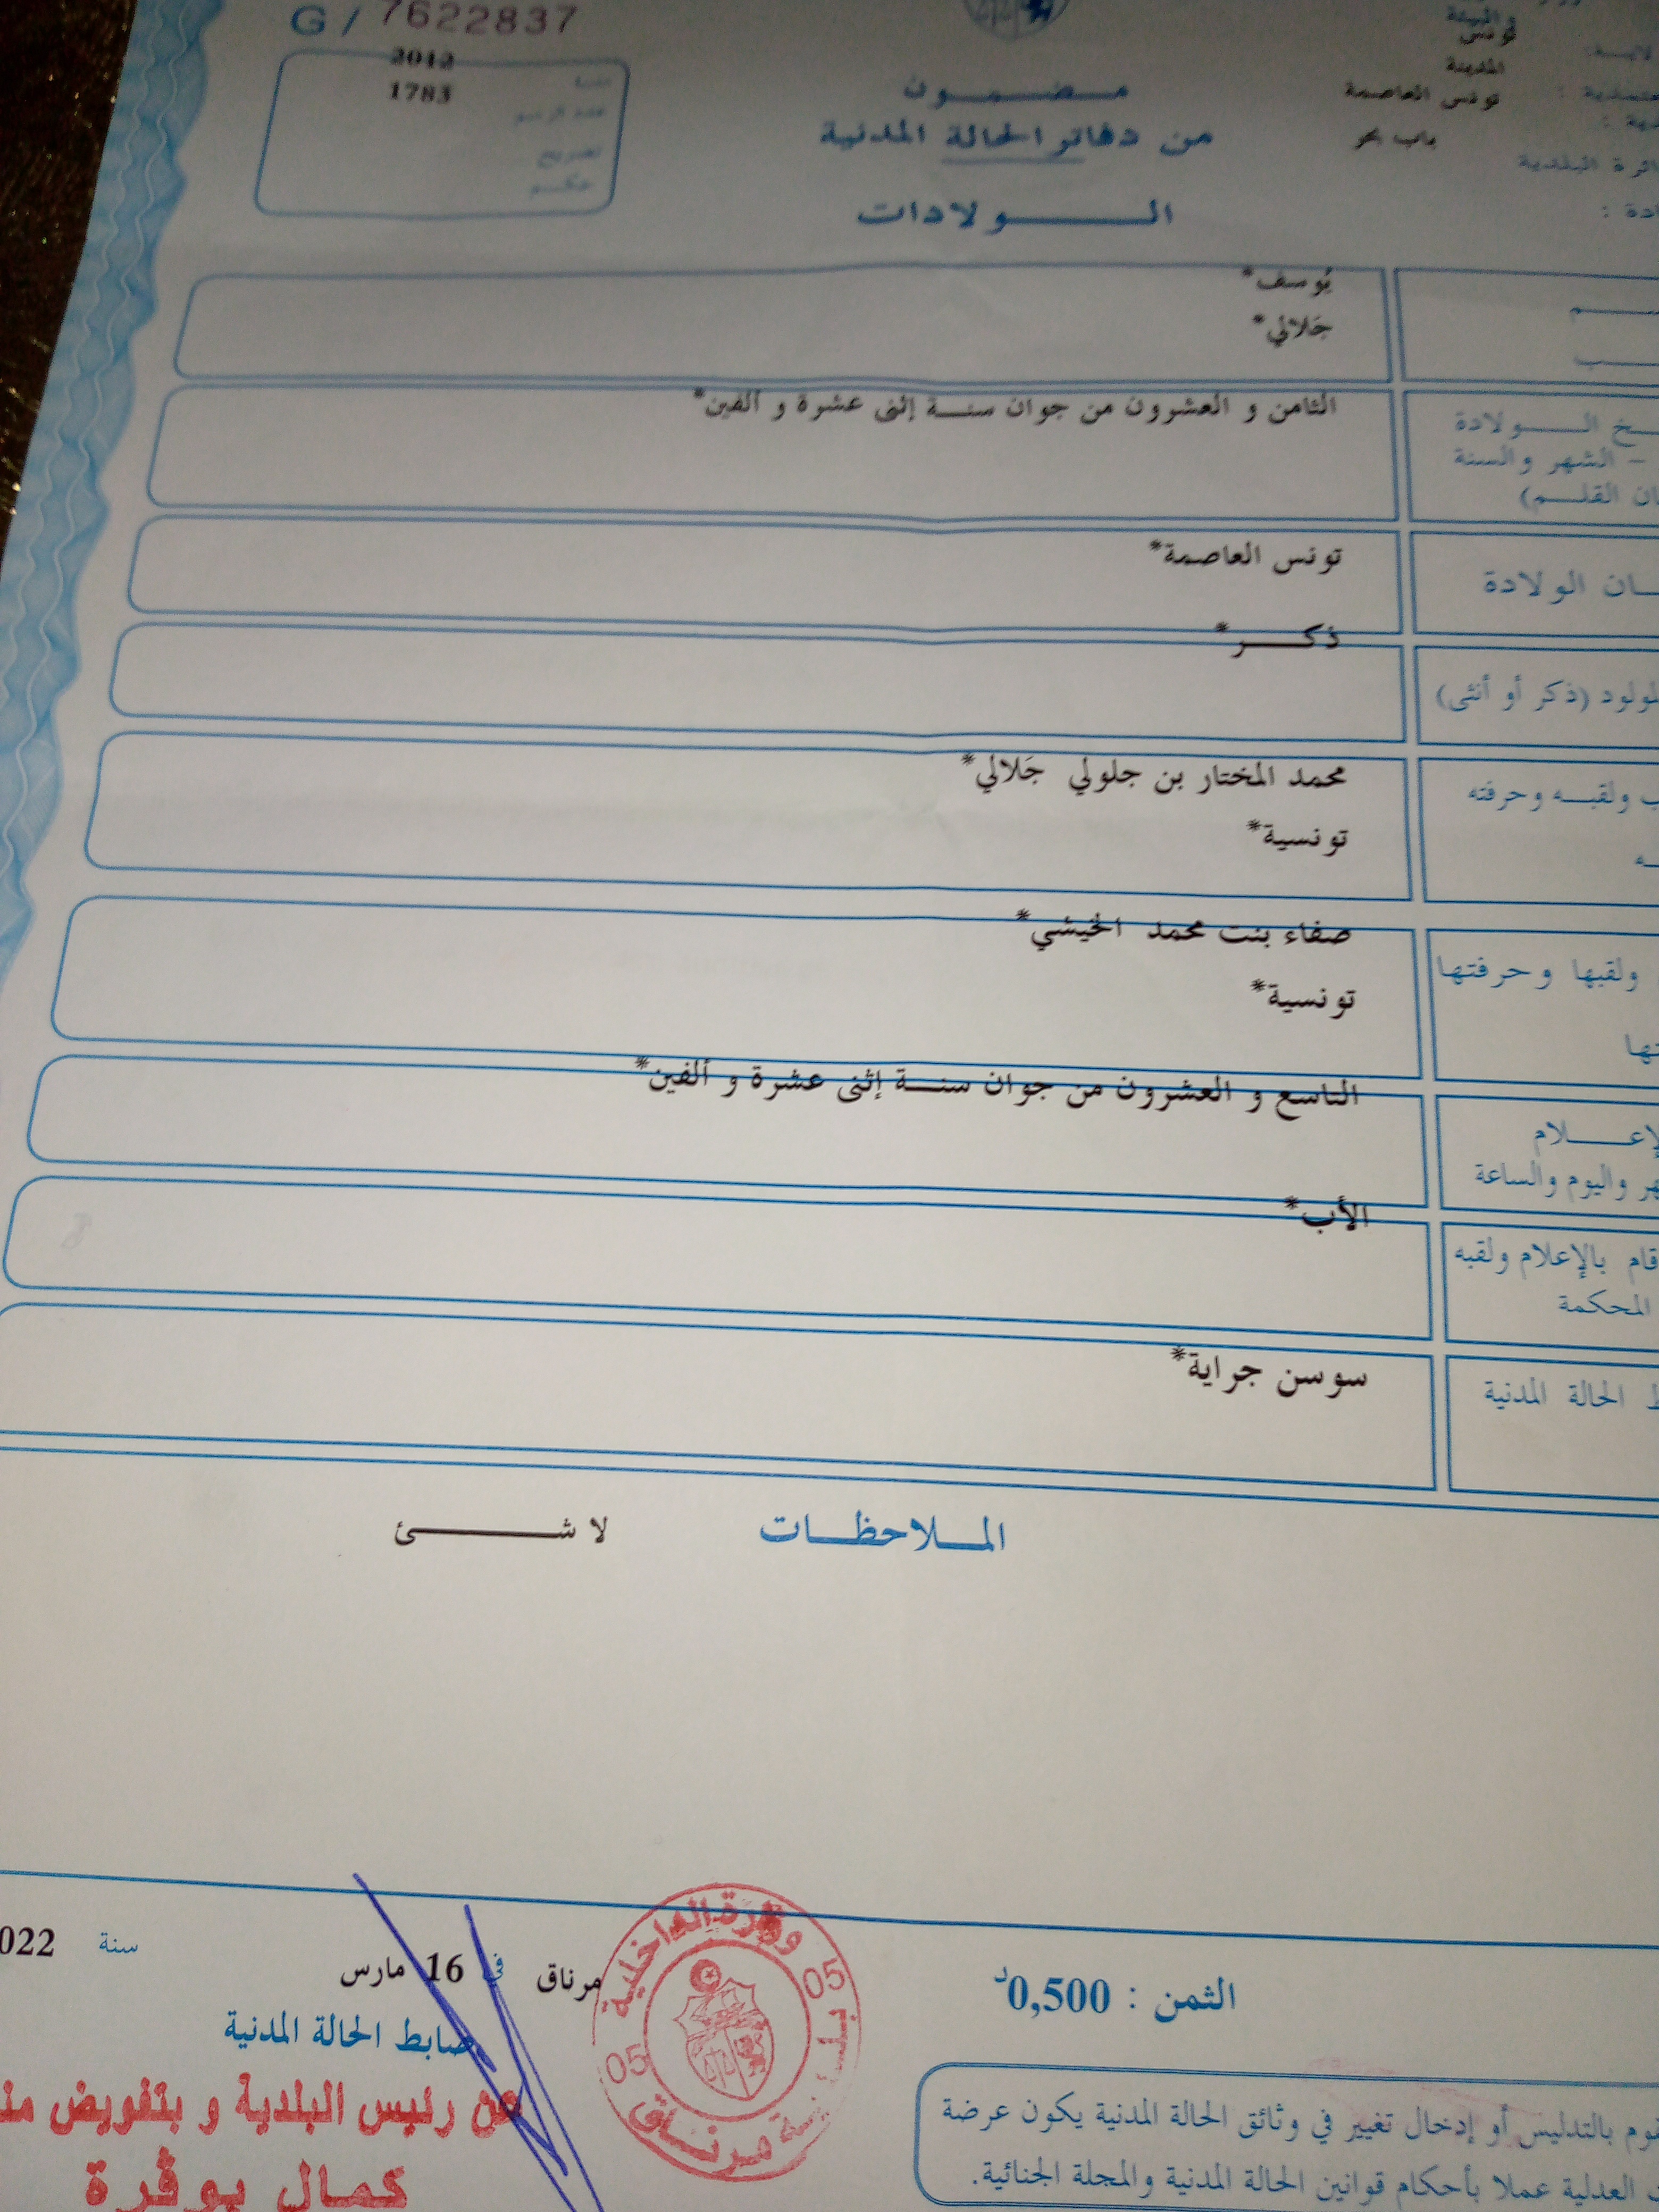 G / 7622837
والبيئة
تونس
المدينة
تونس العاصمة
باب بحر
2012
1783
مضمون
من دفاتر الحالة المدنية
الولادات
يُوسف*
جَلالي*
الثامن و العشرون من جوان سنة إثنى عشرة و ألفين*
الولادة
- الشهر والسنة
القلم)
تونس العاصمة*
الولادة
ذكر*
(ذكر أو أنثى)
محمد المختار بن جلولي جَلالي*
ولقبه وحرفته
تونسية*
صفاء بنت محمد الخيشي*
ولقبها وحرفتها
تونسية*
التاسع و العشرون من جوان سنة إثنى عشرة و ألفين*
واليوم والساعة
الأب*
قام بالإعلام ولقبه
المحكمة
سوسن جراية*
الحالة المدنية
الملاحظات لا شئ
مرناق في 16 مارس سنة 022
ضابط الحالة المدنية
عن رئيس البلدية و بتفويض
كمال بوقرة
وزارة الداخلية
05 05
بلدية مرناق
الثمن : 0,500د
بالتدليس أو إدخال تغيير في وثائق الحالة المدنية يكون عرضة
العدلية عملا بأحكام قوانين الحالة المدنية والمجلة الجنائية.